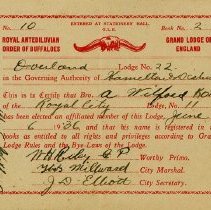 No. 10 ENTERED AT STATIONERS' HALL Book No. 2
G.L.E.
ROYAL ANTEDILUVIAN GRAND LODGE OF
ORDER OF BUFFALOES ENGLAND
Overland Lodge No. 22.
in the Governing Authority of Hamilton
This is to Certify that Bro A Wilford
of the Royal City Lodge, No. 11
has been elected an affiliated member of this Lodge, June
6 1936 and has been registered in our
books as entitled to all rights and privileges according to Grand
Lodge Rules and the Bye Laws of the Lodge.
C.P. Worthy Primo.
Thos Millward City Marshal.
J. D. Elliott City Secretary.